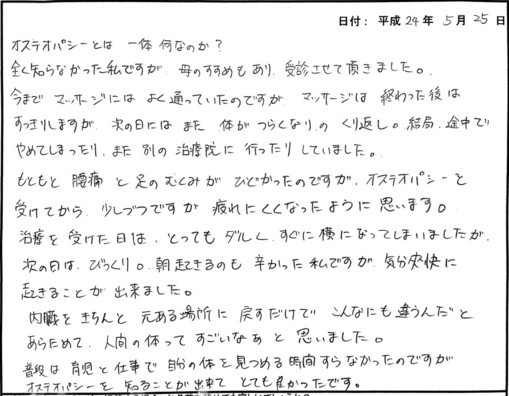 日付: 平成24年 5月 25日
オステオパシーとは 一体 何なのか？
全く知らなかった私ですが、母のすすめもあり、受診させて頂きました。
今まで マッサージには よく通っていたのですが、マッサージは 終わった後は
すっきりしますが、次の日には また 体が つらくなり、の くり返し。結局、途中で
やめてしまったり、また 別の 治療院に 行ったり していました。
もともと 腰痛 と 足の むくみが ひどかったのですが、オステオパシーと
受けてから、少しづつですが 疲れにくくなったように 思います。
治療を 受けた日は、とっても ダルく、すぐに 横に なってしまいましたが、
次の日は、びっくり。朝起きるのも 辛かった 私ですが、気分爽快に
起きることが 出来ました。
内臓を きちんと 元ある場所に 戻すだけで こんなにも 違うんだと
あらためて、人間の体って すごいなぁ と 思いました。
普段は 育児と仕事で 自分の体を 見つめる 時間すらなかったのですが
オステオパシーを 知ることが出来て とても 良かったです。